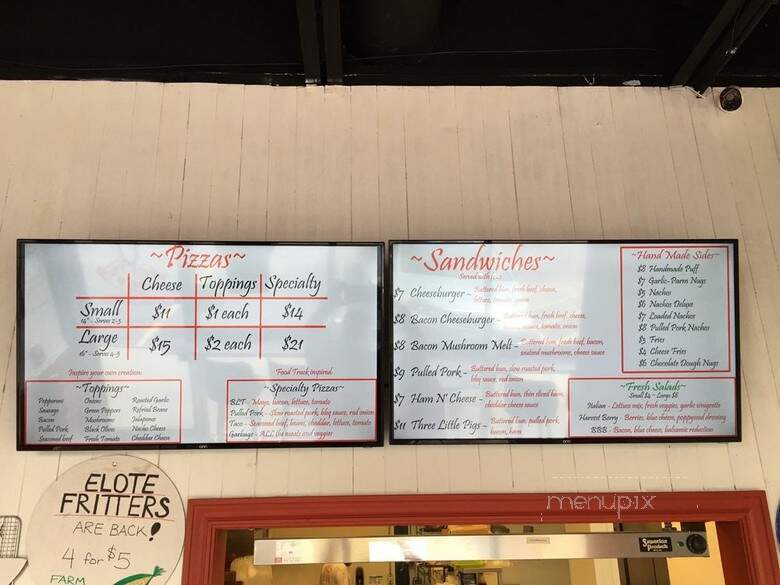 ~Pizzas~
Cheese Toppings Specialty
Small $11 $1 each $14
14" - Serves 2-3
Large $15 $2 each $21
16" - Serves 4-5
Inspire your own creation:
~Toppings~
Pepperoni Onions Roasted Garlic
Sausage Green Peppers Refried Beans
Bacon Mushrooms Jalapenos
Pulled Pork Black Olives Nacho Cheese
Seasoned beef Fresh Tomato Cheddar Cheese
Food Truck inspired:
~Specialty Pizzas~
BLT - Mayo, bacon, lettuce, tomato
Pulled Pork - Slow roasted pork, bbq sauce, red onion
Taco - Seasoned beef, beans, cheddar, lettuce, tomato
Garbage - ALL the meats and veggies
onn
~Sandwiches~
Served with fries
$7 Cheeseburger - Buttered bun, fresh beef, cheese,
lettuce, tomato, onion
$8 Bacon Cheeseburger - Buttered bun, fresh beef, cheese,
tomato, onion
$8 Bacon Mushroom Melt - Buttered bun, fresh beef, bacon,
sauteed mushrooms, cheese sauce
$9 Pulled Pork - Buttered bun, slow roasted pork,
bbq sauce, red onion
$7 Ham N' Cheese - Buttered bun, thin sliced ham,
cheddar cheese sauce
$11 Three Little Pigs - Buttered bun, pulled pork,
bacon, ham
~Hand Made Sides~
$8 Handmade Puff
$7 Garlic-Parm Nugs
$5 Nachos
$6 Nachos Deluxe
$7 Loaded Nachos
$8 Pulled Pork Nachos
$3 Fries
$4 Cheese Fries
$6 Chocolate Dough Nugs
~Fresh Salads~
Small $4 - Large $8
Italian - Lettuce mix, fresh veggies, garlic vinaigrette
Harvest Berry - Berries, blue cheese, poppyseed dressing
BBB - Bacon, blue cheese, balsamic reduction
onn
ELOTE
FRITTERS
ARE BACK!
4 for $5
FARM
menupix
Superior